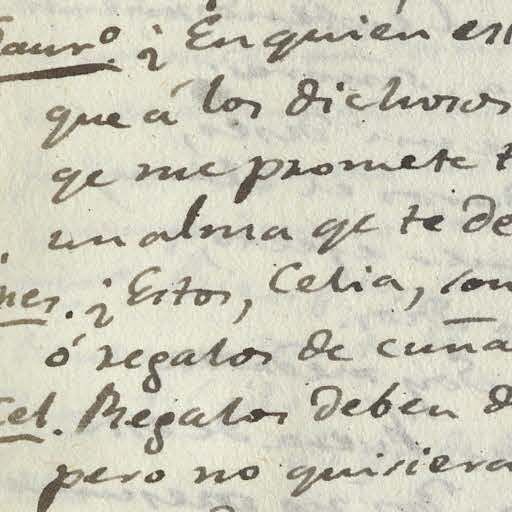 Taurº. ¿En quien es
que á los dichosos
qe me promete t
un alma qe te de
nes. ¿Estos, Celia, son
ó regalos de cuña
Cel. Regalos deben d
pero no quisiera